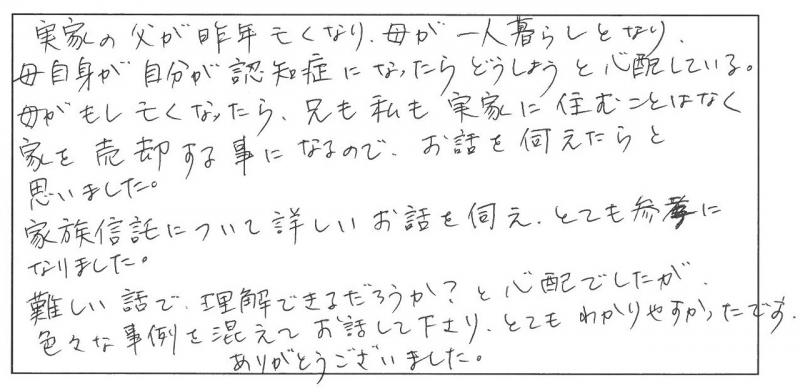 実家の父が昨年亡くなり、母が一人暮らしとなり、
母自身が自分が認知症になったらどうしようと心配している。
母がもし亡くなったら、兄も私も実家に住むことはなく
家を売却する事になるので、お話を伺えたらと
思いました。
家族信託について詳しいお話を伺え、とても参考に
なりました。
難しい話で、理解できるだろうか?と心配でしたが、
色々な事例を混えてお話して下さり、とてもわかりやすかったです。
ありがとうございました。